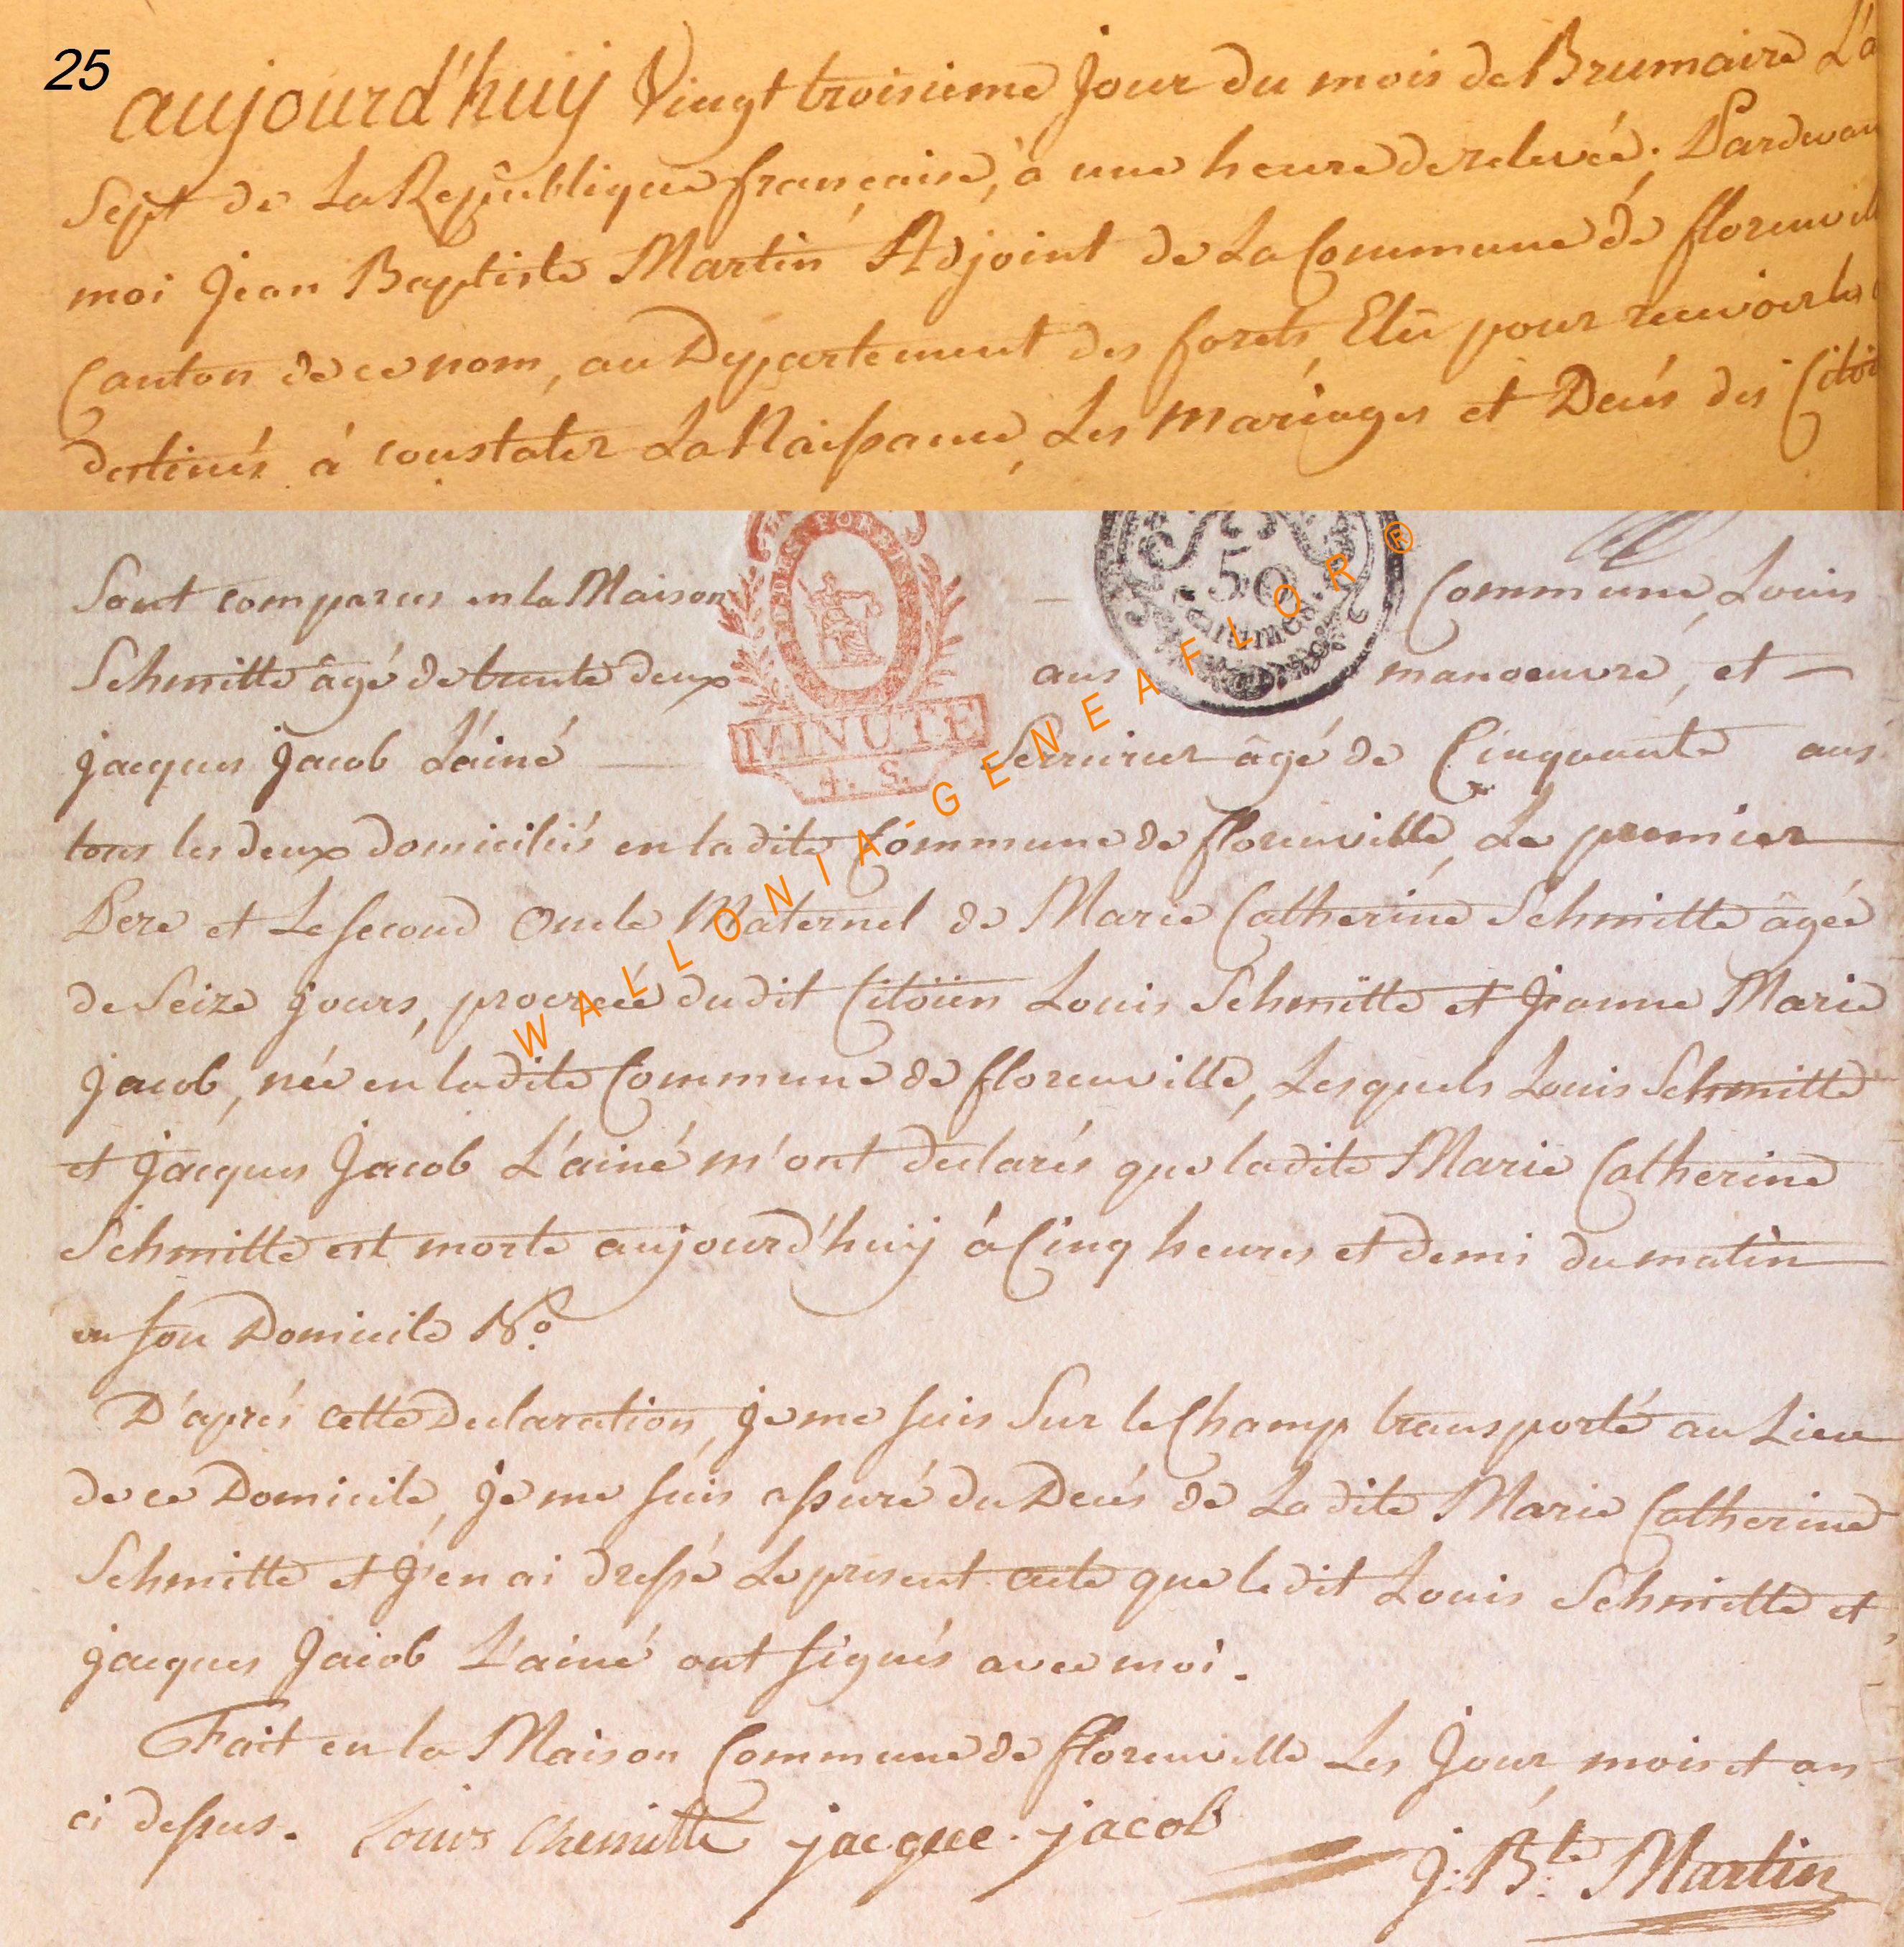 25
aujourd'huy Vingt troisieme Jour du mois de Brumaire L'a
Sept de La République française, à une heure de relevée; Pardevan
moi Jean Baptiste Martin Adjoint de La Commune de florenvill
Canton de ce nom, au Departement des forets, Elû pour recevoir les
destinés à constater La Naissance, Les Mariages et Decés des Citoi
Sont comparus en la Maison Commune, Louis
Schmitte âgé de trente deux ans manoeuvre, et
jacques Jacob L'ainé Serrurier âgé de Cinquante ans
tous les deux domiciliés en la dite Commune de florenville, Le premier
Pere et Le second Oncle Maternel de Marie Catherine Schmitte âgée
de Seize jours, procréée du dit Citoïen Louis Schmitte et Jeanne Marie
Jacob, née en ladite Commune de florenville, Lesquels Louis Schmitte
et Jacques Jacob L'ainé m'ont declarés que ladite Marie Catherine
Schmitte est morte aujourd'huÿ à Cinq heures et demi du matin
en son Domicile N.o
D'aprés cette Declaration, Je me suis Sur le Champ transporté au Lieu
de ce Domicile, Je me suis assuré du Decés de La dite Marie Catherine
Schmitte et J'en ai dressé Le present acte que le dit Louis Schmitte et
jacques Jacob L'ainé ont signés avec moi.
Fait en la Maison Commune de florenville Les Jour, mois et an
ci dessus. Louis Chemitte jacque jacob
J. B.te Martin
MINUTE
50
WALLONIA-GENEAFLOR ®